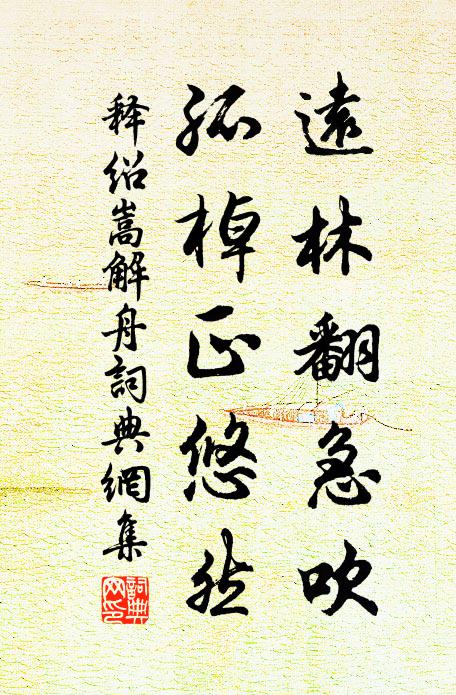 遠林翻急吹
孤棹正悠然
释绍嵩解舟詞典網集
詞典网印